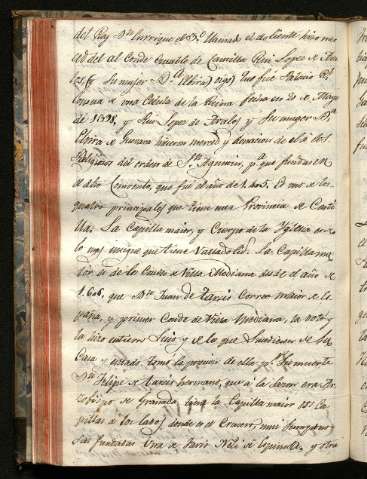 del Rey Dn Enrrique el 3º llamado el doliente hizo mer
ced al Conde de Castilla Peri Lopez de
su muger Dª Elvira
una Cedula de la Reina fecha en 20 de Mayo
de 1398, y Lopez de y su muger Dª
Elvira de Guzman hicieron merced y donacion de el a los
Religiosos del orden de Sn Agustin, pª que fundasen
el dho Convento, que fue el año de 1405. Es uno de los
quatro principales que tiene una Provincia de Casti
lla. La Capilla maior, y Cruzero de la Yglesia es de
lo mas insigne que tiene Valladolid. La Capilla ma
ior es de los Condes de Villa Mediana desde el año de
1606, que Dn Juan de Tarsis Correo maior de
España, y primer Conde de Villa Mediana, la doto
y la hizo entierro Suio, y de los que Sucediesen en su
Casa y estado, tomo la posesion de ella pr su muerte
Dn Felipe de Tarsis hermano, que a la sazon era Arz
obispo de Granada, tiene la Capilla maior dos Ca
pillas a los lados donde es el Crucero, mui
das fundadas Una de Fabio Neli de Espinosa, y otra